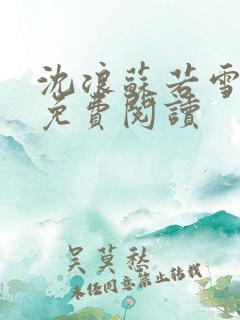 沈浪蘇若雪
免費閱讀
吴莫愁
未经同意禁止转载